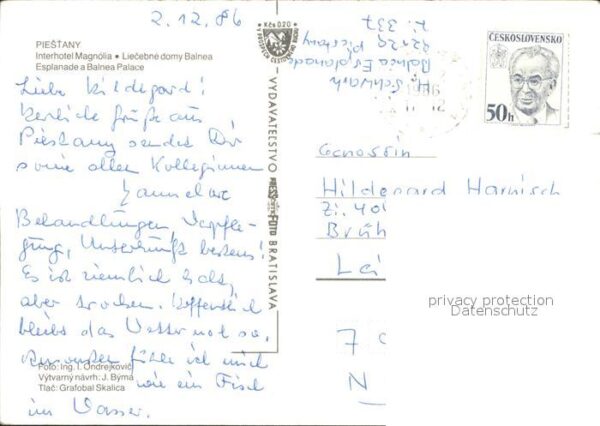 2.12.86
PIEŠŤANY
Interhotel Magnólia • Liečebné domy Balnea
Esplanade a Balnea Palace
Liebe Hildegard!
Herzliche Grüße aus
Piestany sendet Dir
sowie allen Kolleginnen
Hannelore
Behandlungen Verpfle-
gung, Unterkunft bestens!
Es ist ziemlich kalt,
aber trocken. Hoffentlich
bleibt das Wetter noch so.
Ansonsten fühle ich mich
wie ein Fisch
im Wasser.
Foto: Ing. I. Ondrejkovič
Výtvarný návrh: J. Býma
Tlač: Grafobal Skalica
Kčs 0,20
VYDAVATEĽSTVO PRESSFOTO BRATISLAVA
H. Schwarz
Balnea Esplanade
Piestany
Z. 337
ČESKOSLOVENSKO
50h
Genossin
Hildegard Harnisch
Zi. 40
Brüh
Lei
7
N
privacy protection
Datenschutz